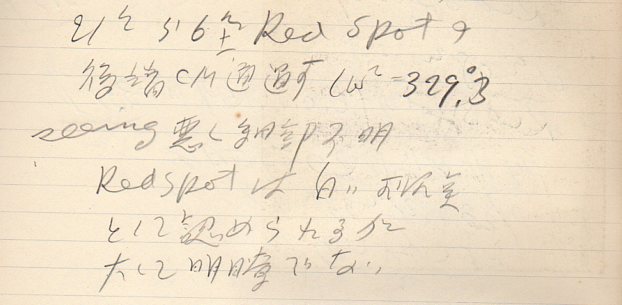 21ʰ 56ᵐ± Red Spot の
後端 CM 通過す (ω²=329°.3
seeing 悪く細部不明
Red spot は白い
として認められる
大して明瞭でない